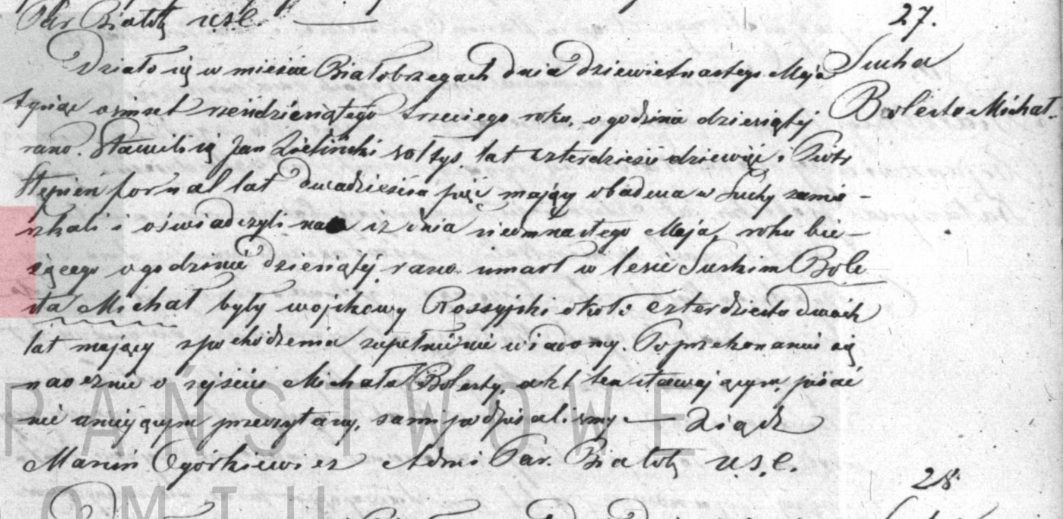 Par. Białob. U.S.C.
27.
Sucha
Bolesta Michał.
Działo się w mieście Białobrzegach dnia dziewietnastego Maja
tysiąc ośmset sześćdziesiątego trzeciego roku, o godzinie dziesiątej
rano. Stawili się Jan Zieliński sołtys lat czterdzieści dziewięć i Piotr
Stępień fornal lat dwadzieścia pięć mający obadwa w Suchy zamie-
szkali i oświadczyli nam iż dnia siedmnastego Maja roku bie-
żącego o godzinie dziesiątej rano umarł w lesie Suskim Bole
sta Michał były wojskowy Rossyjski około czterdziestu dwóch
lat mający z pochodzenia zupełnie nie wiadomy. Po przekonaniu się
naocznie o zejściu Michała Bolesty, akt ten stawającym pisać
nie umiejącym przeczytany, sami podpisaliśmy — Xiądz
Marcin Ogórkiewicz Admi Par. Białob. U.S.C.
28
PAŃSTWOWE